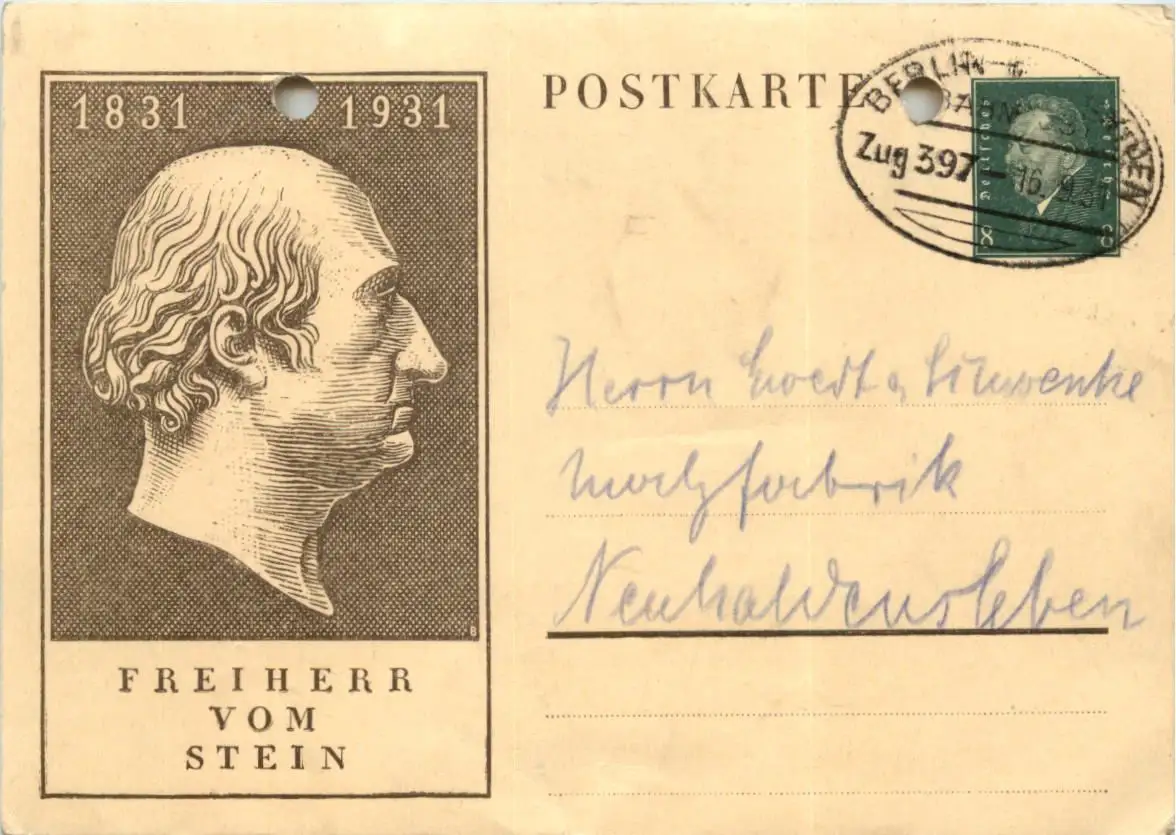 1831 1931
FREIHERR
VOM
STEIN
POSTKARTE
BERLIN
BAHNPOST
Zug 397 - 16.9.31
Deutsches Reich
8 8
Herrn & Schwenke
Malzfabrik
Neuhaldensleben